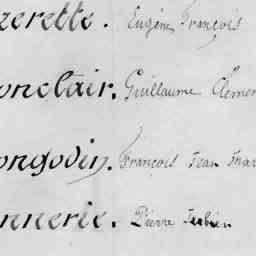 zerette. Eugène François
onclair. Guillaume Clemen
ongodin. François Jean Mar
nnerie. Pierre